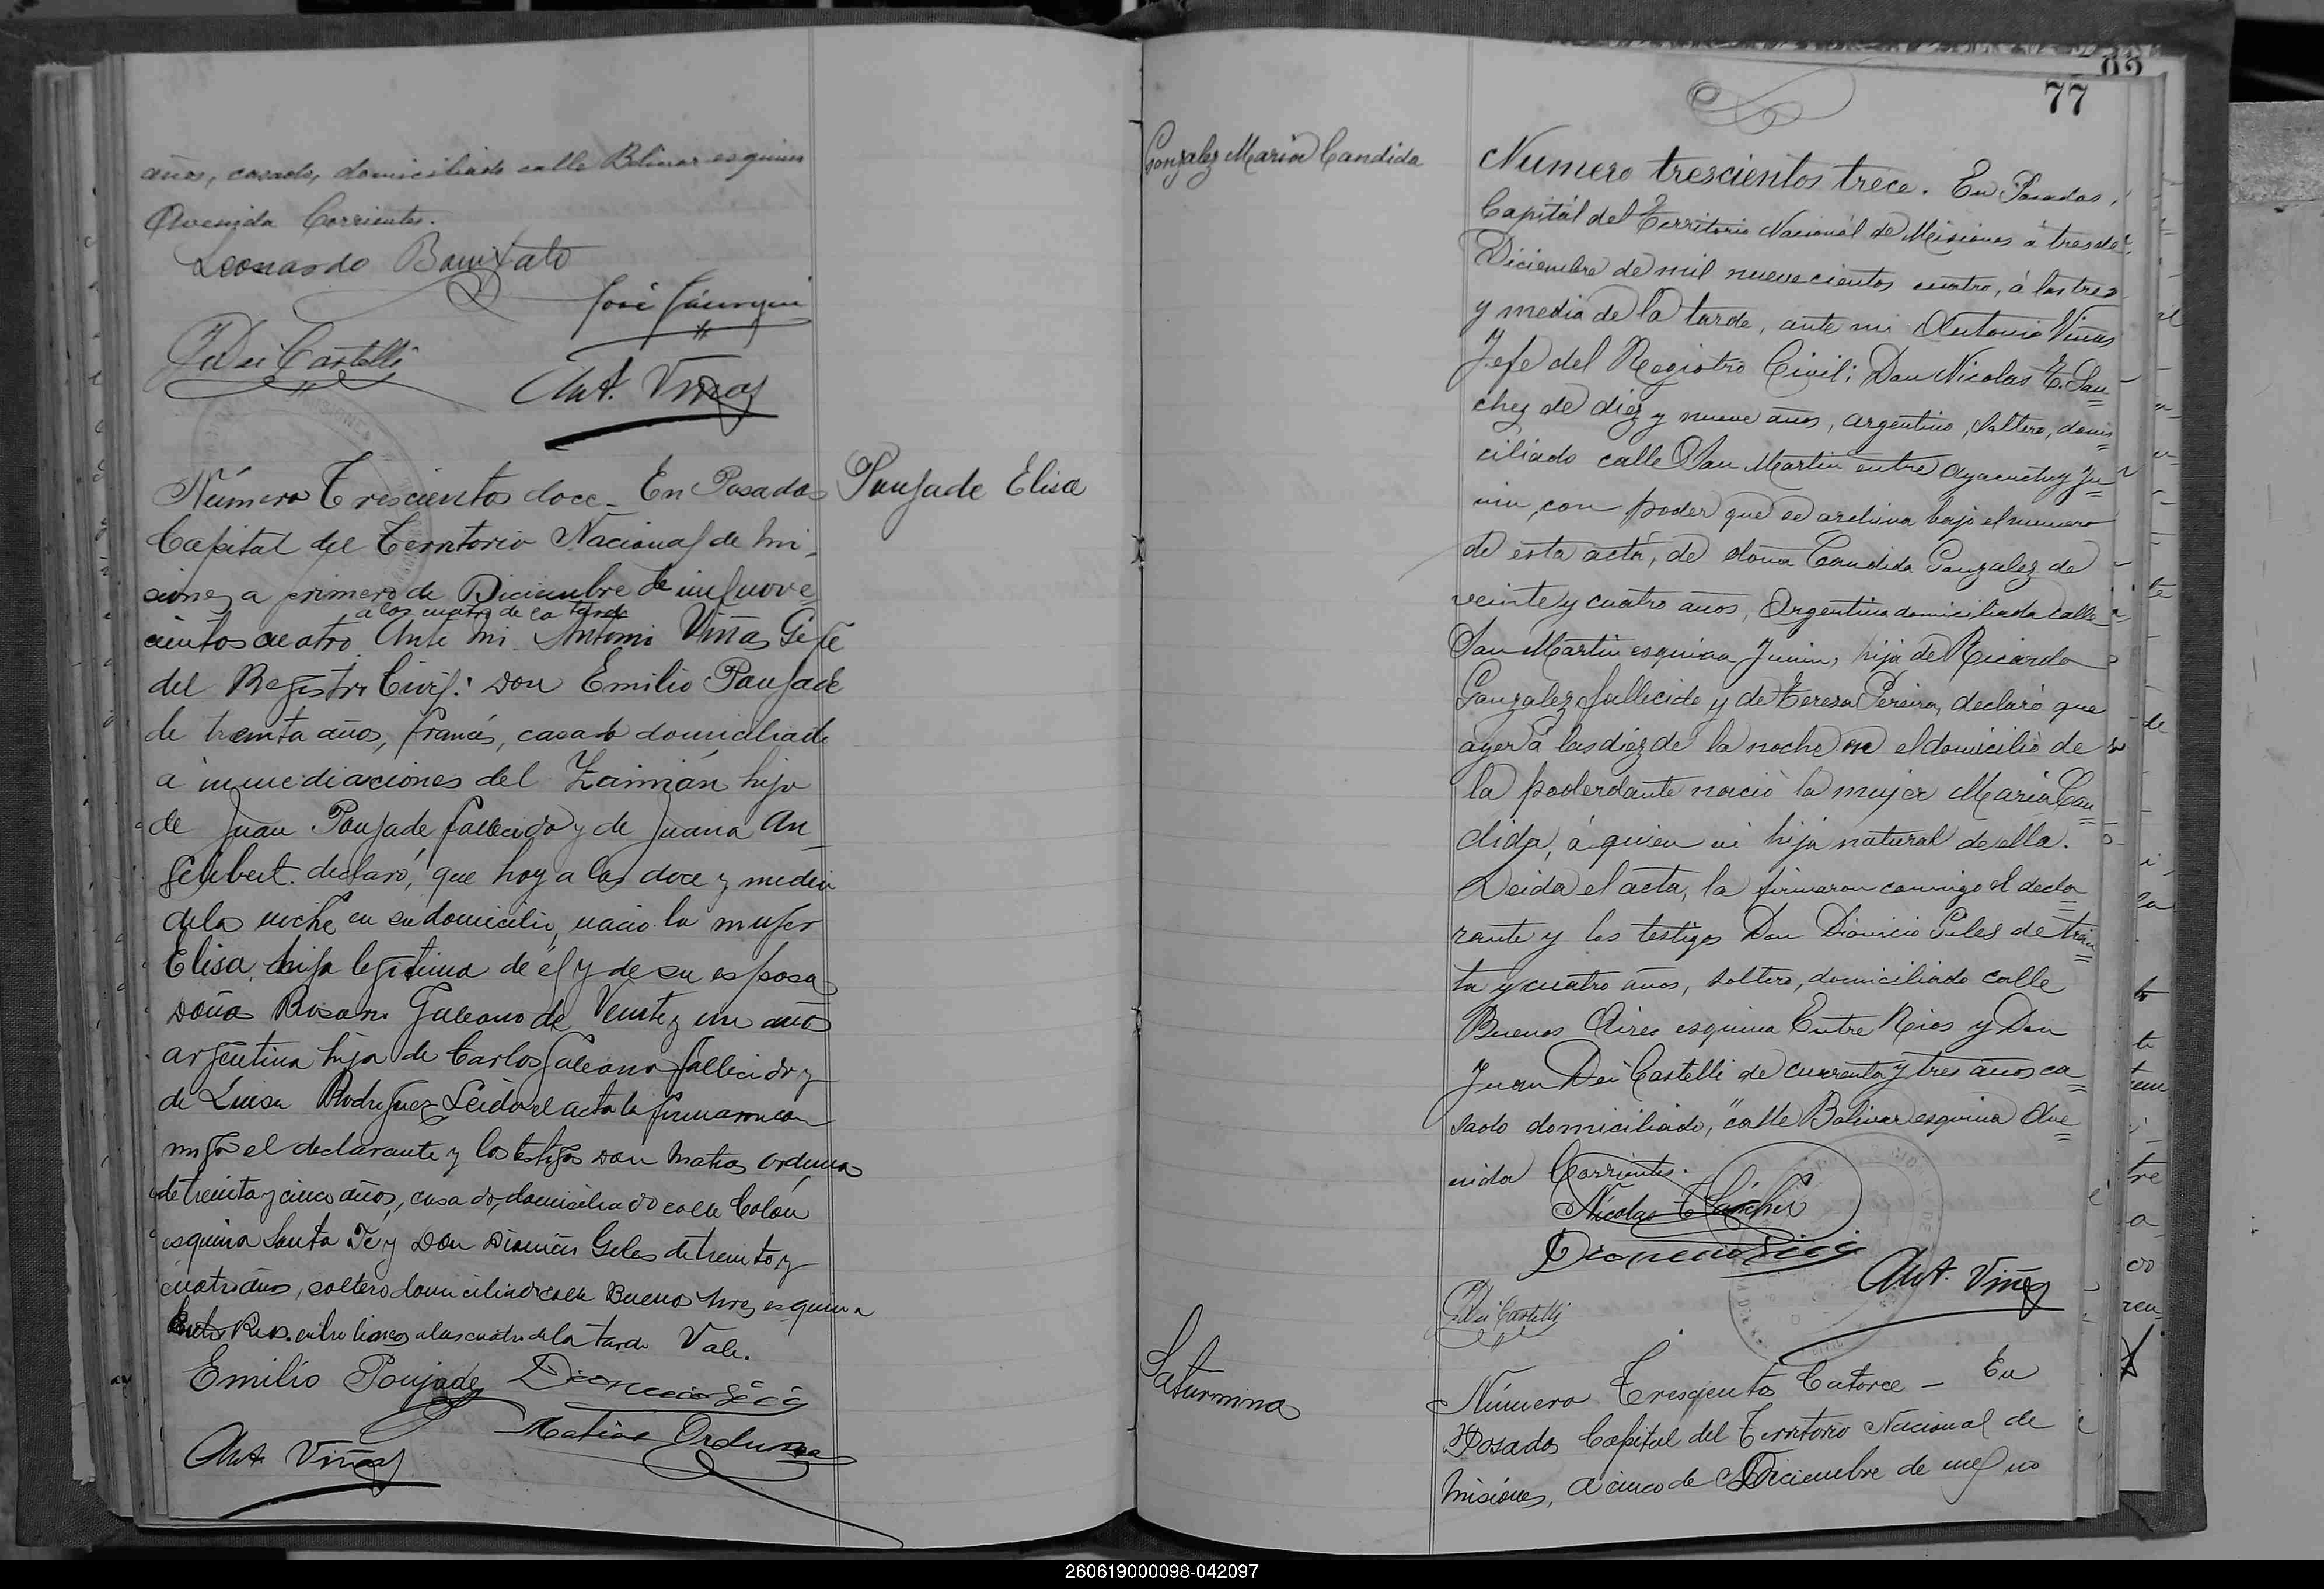 años, casado, domiciliado calle Bolivar esquina
Avenida Corrientes.
Leonardo
José
J Dei Castelli
Ant. Viñas
Poujade Elisa
Número Trescientos doce_ En Posadas
Capital del Territorio Nacional de Mi_
siones a primero de Diciembre de mil nove
a las cuatro de la tarde
cientos cuatro Ante mi Antonio Viñas Gefe
del Registro Civil: Don Emilio Poujade
de treinta años, francés, casado domiciliado
a inmediaciones del Zaimán hijo
de Juan Poujade fallecido y de Juana An_
gelibert. declaró, que hoy a las doce y media
de la noche en su domicilio, nacio la mujer
Elisa, hija legitima de él y de su esposa
Doña Rosa Galeano de Veinte y un años
argentina hija de Carlos Galeano fallecido y
de Luisa Rodriguez Leida el acta la firmaron con
migo el declarante y los testigos Don Matias Orduna
de treinta y cinco años, casado, domiciliado calle Colón
esquina Santa Fé y Don Dionicio Geles de treinta y
cuatro años, soltero domiciliado calle Buenos Aires esquina
Entre Rios. entre lineas a las cuatro de la tarde Vale.
Emilio Poujade
Dionicio
Matias Orduna
Ant Viñas
77
Gonzalez Maria Candida
Numero trescientos trece. En Posadas,
Capitál del Territorio Nacional de Misiones á tres de
Diciembre de mil nuevecientos cuatro, á las tres
y media de la tarde, ante mi Antonio Viñas
Jefe del Registro Civil; Don Nicolas E. San=
chez de diez y nueve años, argentino, soltero, domi=
ciliado calle San Martin entre Ayacucho y Ju=
nin, con poder que se archiva bajo el numero
de esta acta, de doña Candida Gonzalez de
veinte y cuatro años, Argentina domiciliada calle
San Martin esquina Junin, hija de Ricardo
Gonzalez fallecido y de Teresa Pereira, declaró que
ayer á las diez de la noche en el domicilio de
la poderdante nació la mujer Maria Can=
dida, á quien vi hija natural de ella.
Leida el acta, la firmaron conmigo el decla=
rante y los testigos Don Dionicio Geles de trein=
ta y cuatro años, soltero, domiciliado calle
Buenos Aires esquina Entre Rios y Don
Juan Dei Castelli de cuarenta y tres años ca=
sado domiciliado, calle Bolivar esquina Ave=
nida Corrientes.
Nicolas E Sánchez
Dionicio
Ant. Viñas
J Dei Castelli
Saturnina
Número Trescientos Catorce — En
Posadas Capital del Territorio Nacional de
Misiones, a cinco de Diciembre de mil no
260619000098-042097